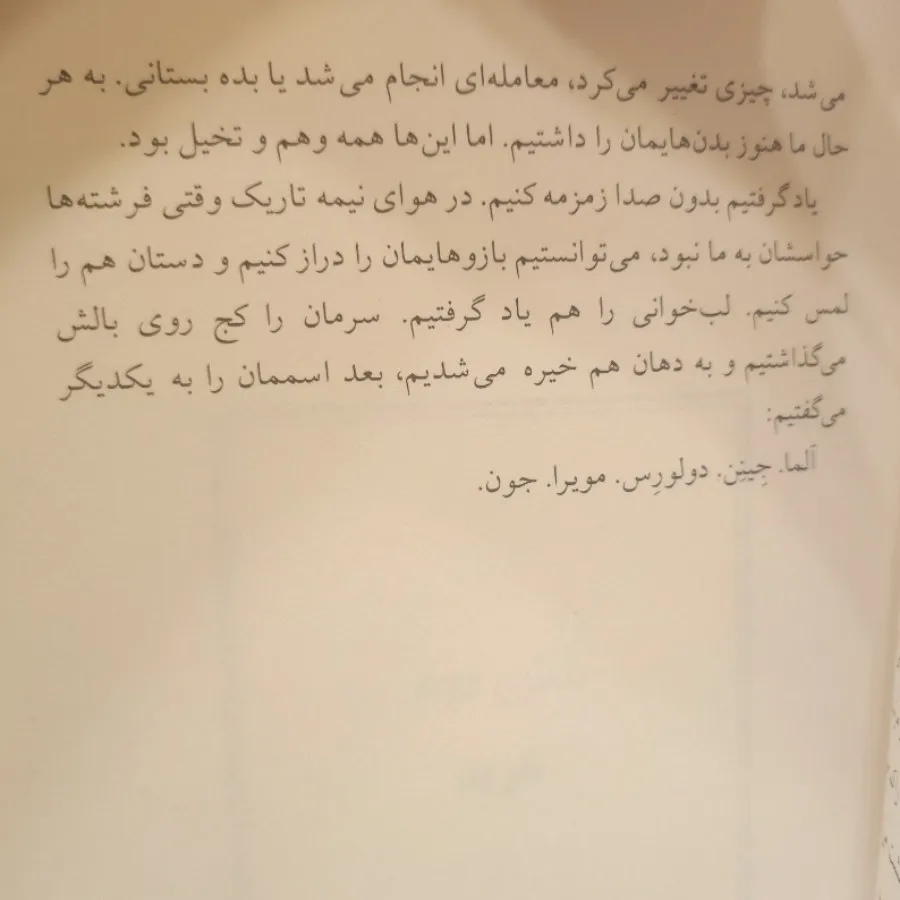 می‌شد، چیزی تغییر می‌کرد، معامله‌ای انجام می‌شد یا بده بستانی. به هر
حال ما هنوز بدن‌هایمان را داشتیم. اما این‌ها همه وهم و تخیل بود.
یاد گرفتیم بدون صدا زمزمه کنیم. در هوای نیمه تاریک وقتی فرشته‌ها
حواسشان به ما نبود، می‌توانستیم بازوهایمان را دراز کنیم و دستان هم را
لمس کنیم. لب‌خوانی را هم یاد گرفتیم. سرمان را کج روی بالش
می‌گذاشتیم و به دهان هم خیره می‌شدیم، بعد اسممان را به یکدیگر
می‌گفتیم:
آلما. جِینِن. دولورِس. مویرا. جون.